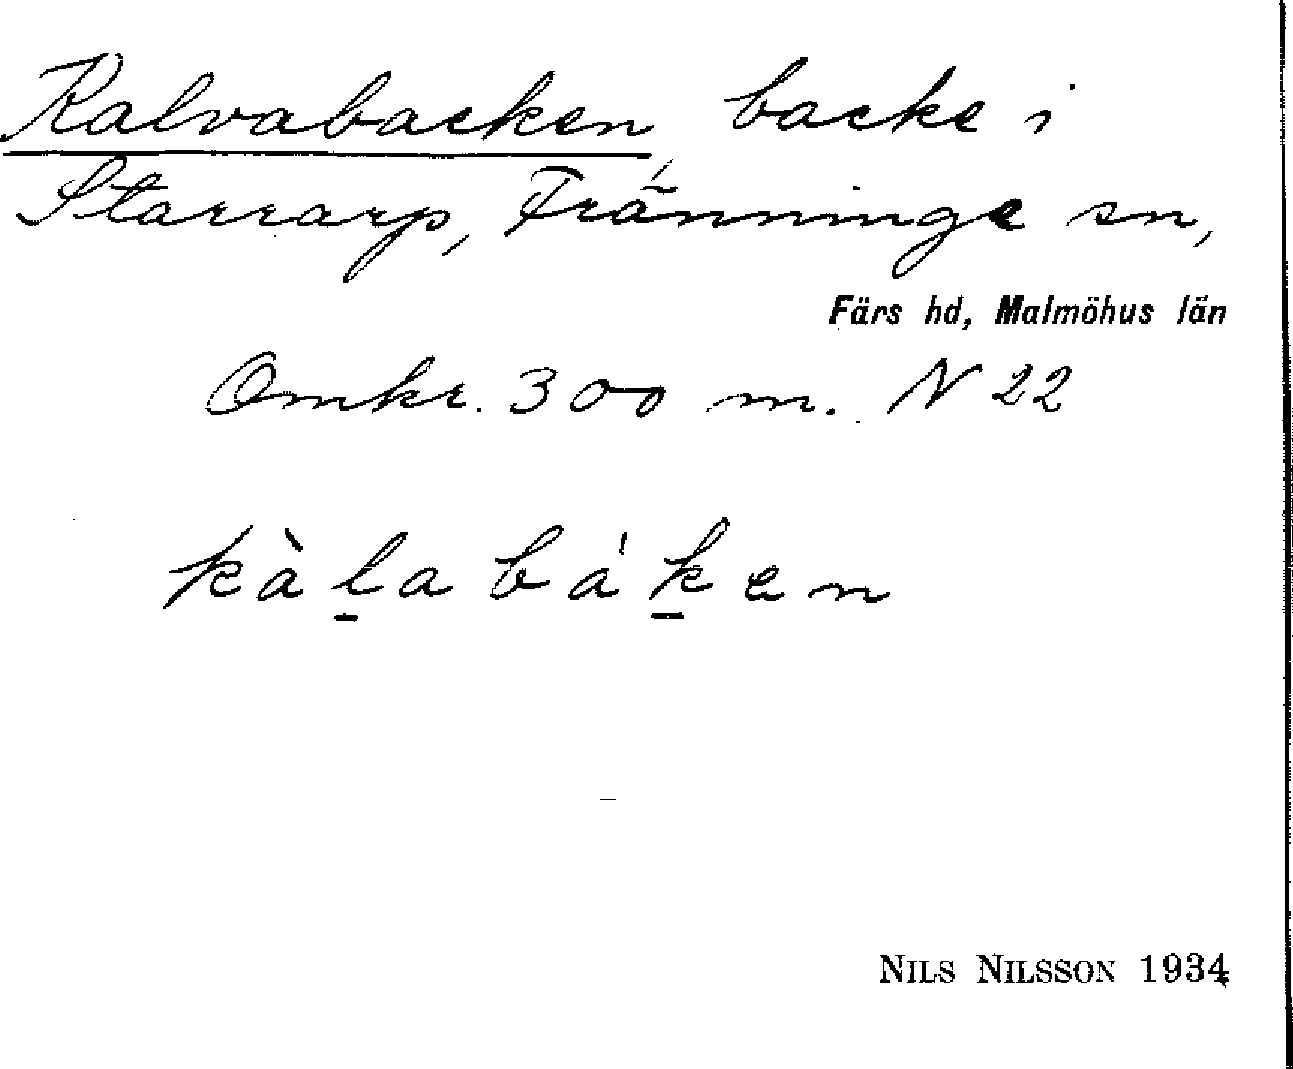 Kalvabacken, backe i
Starrarp, Fränninge sn,
Färs hd, Malmöhus län
Omkr. 300 m. N 22
kàl̠abák̠en
NILS NILSSON 1934